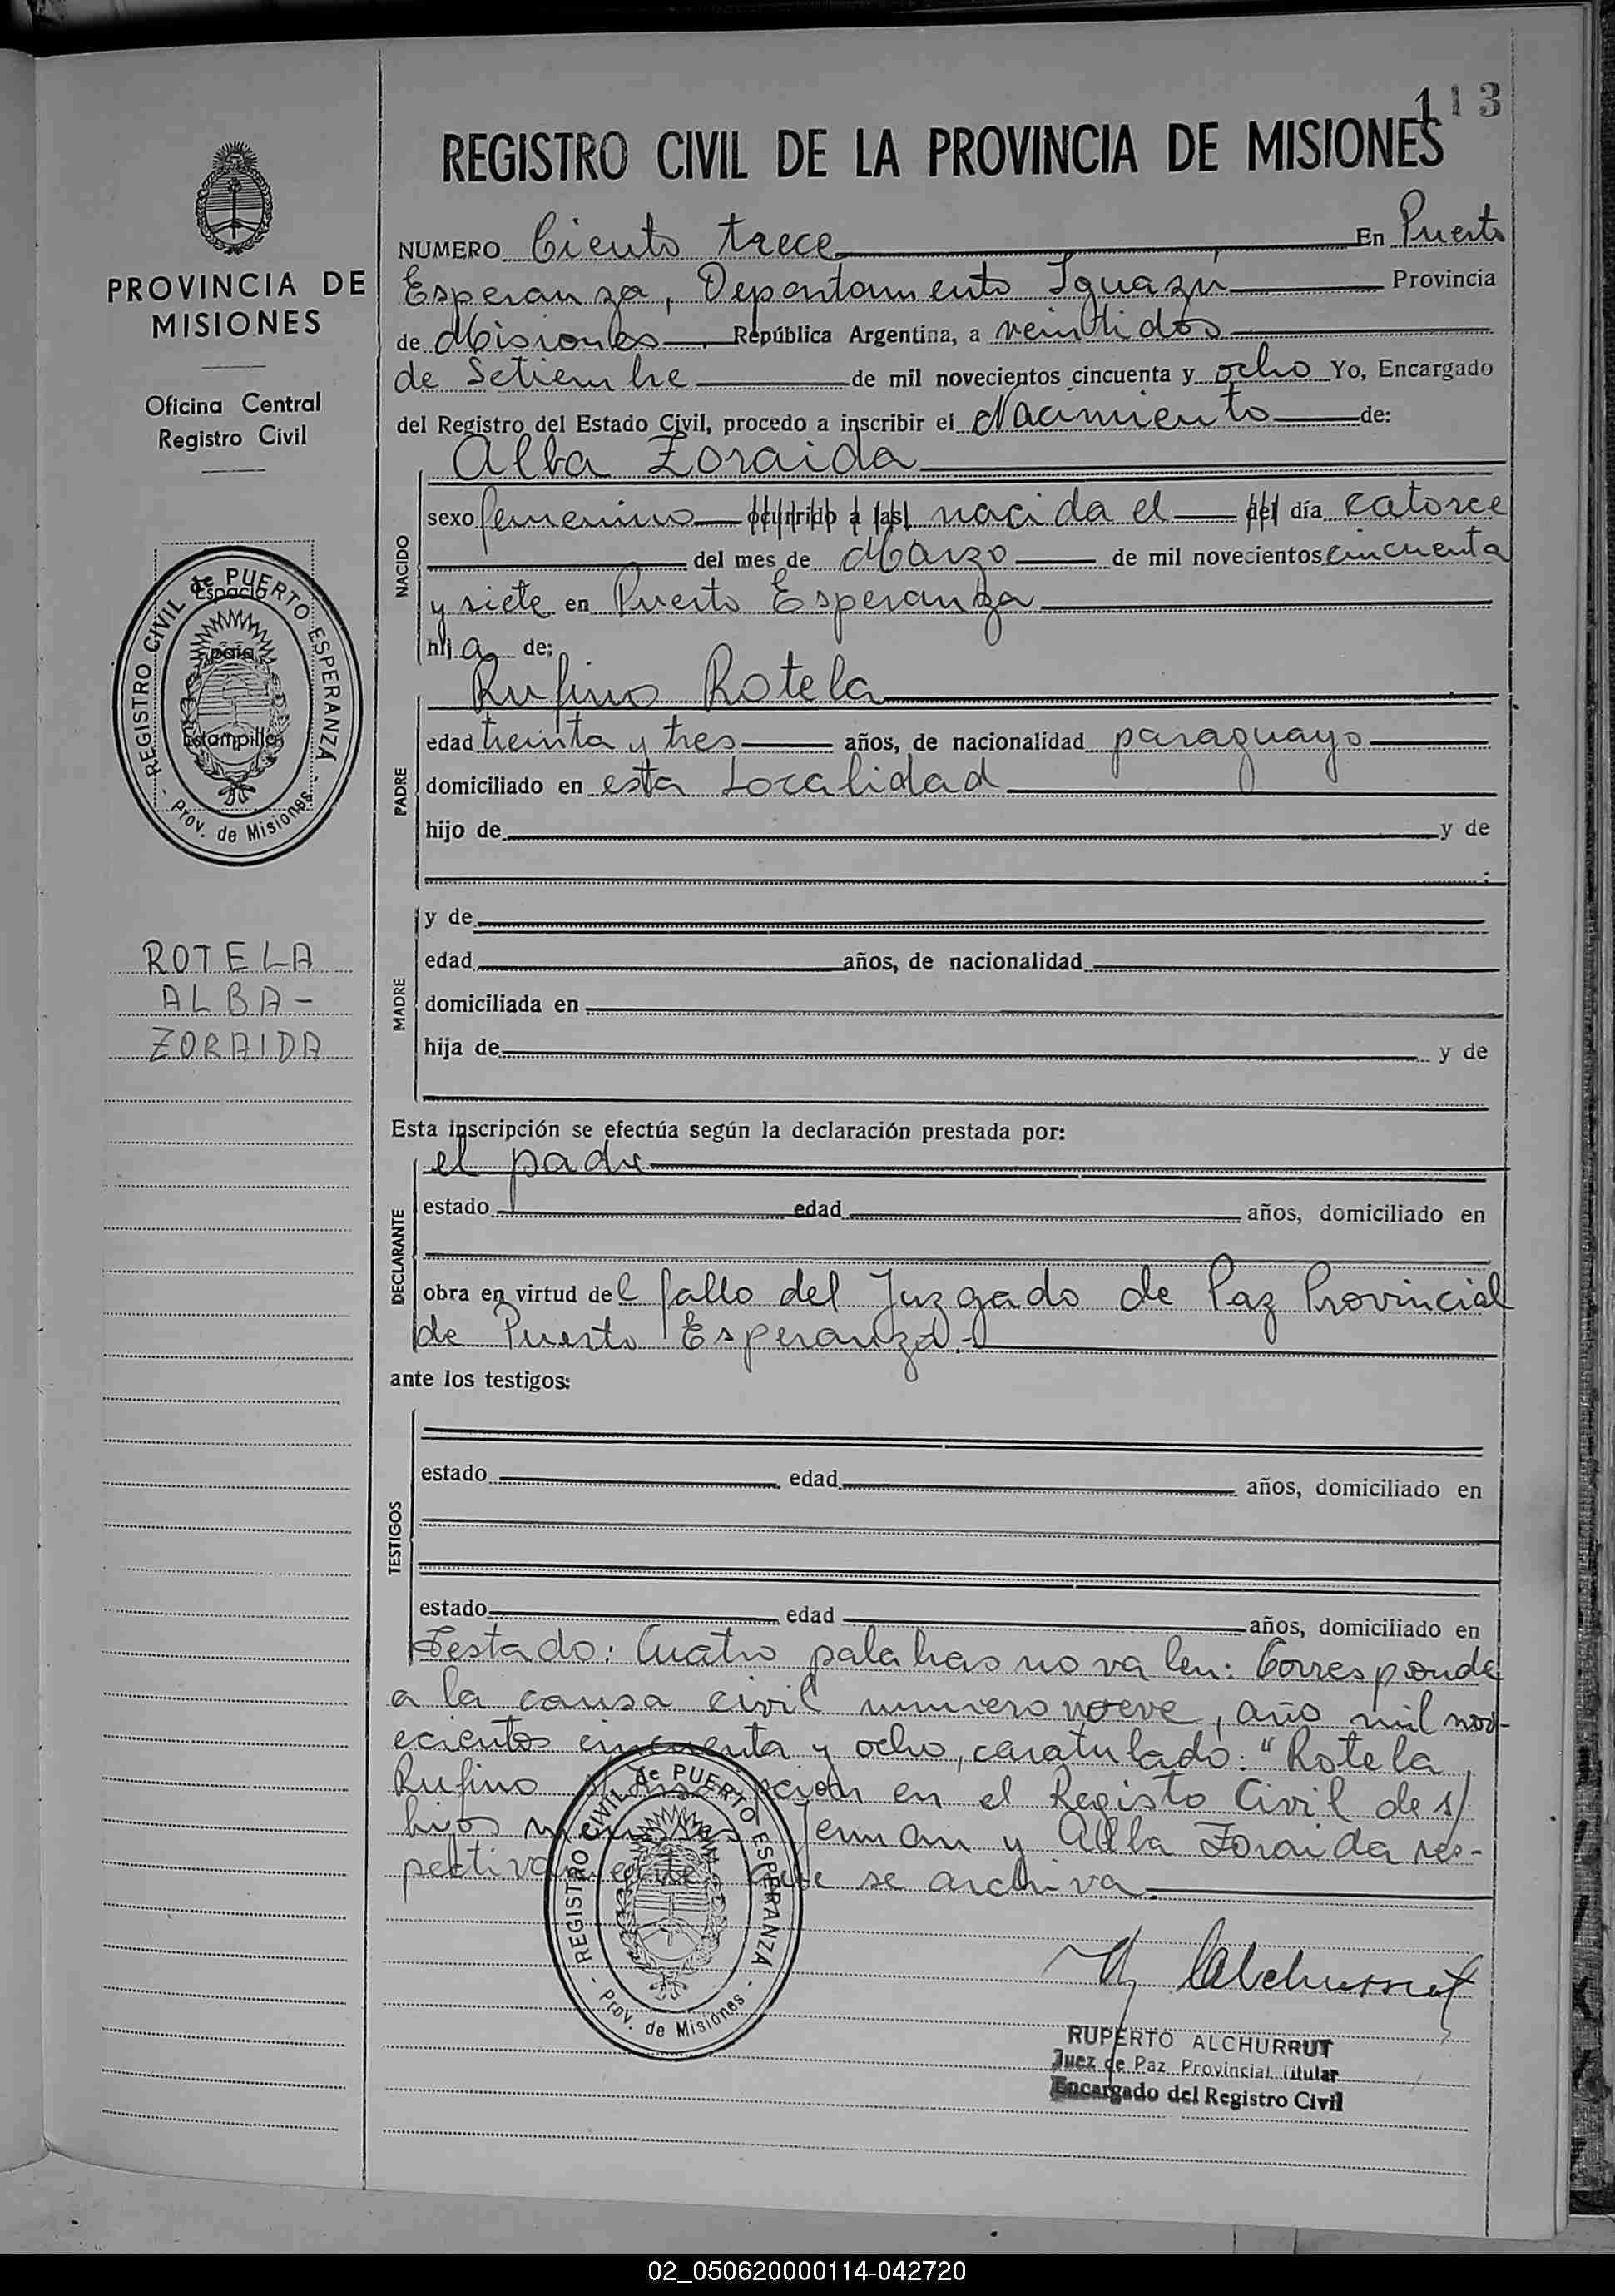 113
REGISTRO CIVIL DE LA PROVINCIA DE MISIONES
PROVINCIA DE
MISIONES
Oficina Central
Registro Civil
REGISTRO CIVIL de PUERTO ESPERANZA
- Prov. de Misiones -
Espacio
para
Estampilla
ROTELA
ALBA-
ZORAIDA
NUMERO Ciento trece En Puerto
Esperanza, Departamento Iguazú Provincia
de Misiones República Argentina, a veintidos
de Setiembre de mil novecientos cincuenta y ocho Yo, Encargado
del Registro del Estado Civil, procedo a inscribir el Nacimiento de:
Alba Zoraida
NACIDO
sexo femenino ocurrido a las nacida el del día catorce
del mes de Marzo de mil novecientos cincuenta
y siete en Puerto Esperanza
hij a de:
Rufino Rotela
PADRE
edad treinta y tres años, de nacionalidad paraguayo
domiciliado en esta Localidad
hijo de y de
MADRE
y de
edad años, de nacionalidad
domiciliada en
hija de y de
Esta inscripción se efectúa según la declaración prestada por:
el padre
DECLARANTE
estado edad años, domiciliado en
obra en virtud del fallo del Juzgado de Paz Provincial
de Puerto Esperanza.-
ante los testigos:
TESTIGOS
estado edad años, domiciliado en
estado edad años, domiciliado en
Testado: Cuatro palabras no valen: Corresponde
a la causa civil numero nueve, año mil nov-
ecientos cincuenta y ocho, caratulado: "Rotela,
Rufino en el Registo Civil de s/
hijos y Alba Zoraida res-
pectivamente se archiva.
REGISTRO CIVIL de PUERTO ESPERANZA
- Prov. de Misiones -
RUPERTO ALCHURRUT
Juez de Paz Provincial Titular
Encargado del Registro Civil
02_050620000114-042720